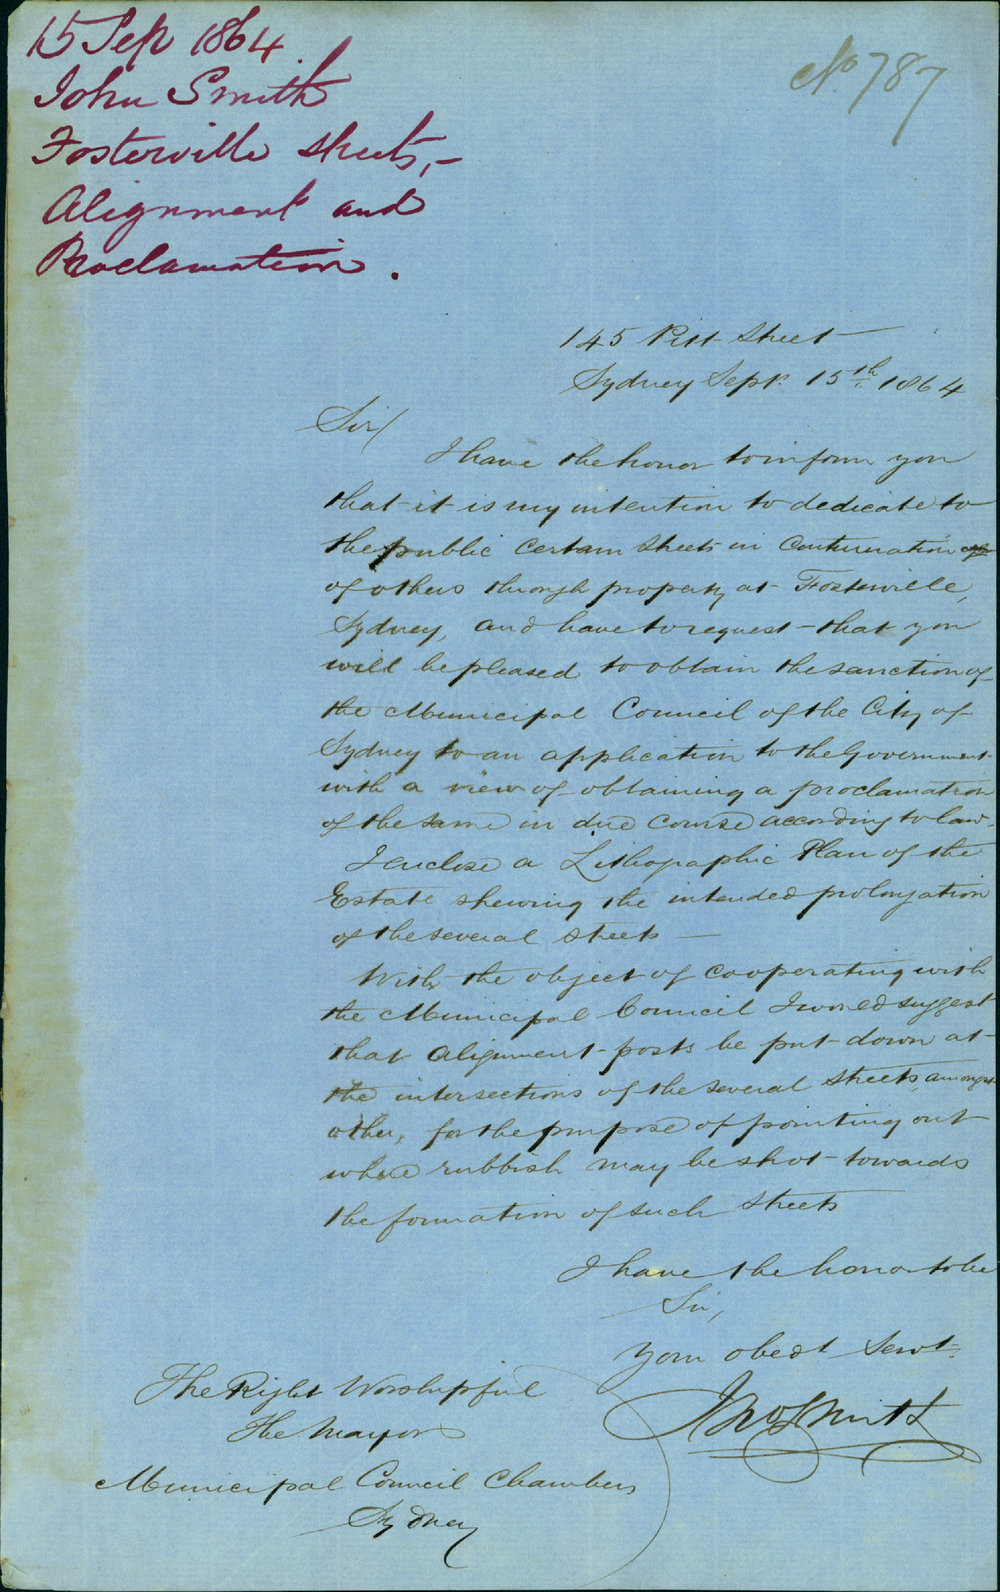 15 Sep 1864
John Smith
Fosterville Streets,-
Alignment and
Proclamation.
No 787
145 Pitt Street
Sydney Sept. 15th. 1864
Sir/
I have the honor to inform you
that it is my intention to dedicate to
the public certain Streets in Continuation
of others through property at Fosterville,
Sydney, and have to request that you
will be pleased to obtain the sanction of
the Municipal Council of the City of
Sydney to an application to the Government
with a view of obtaining a proclamation
of the same in due course according to law.
I enclose a Lithographic Plan of the
Estate shewing the intended prolongation
of the several streets —
With the object of cooperating with
the Municipal Council I would suggest
that alignment posts be put down at
the intersections of the several Streets, amongst
other, for the purpose of pointing out
where rubbish may be shot towards
the formation of such Streets
I have the honor to be
Sir,
Your obedt Servt.
Jno Smith
The Right Worshipful
The Mayor
Municipal Council Chambers
Sydney